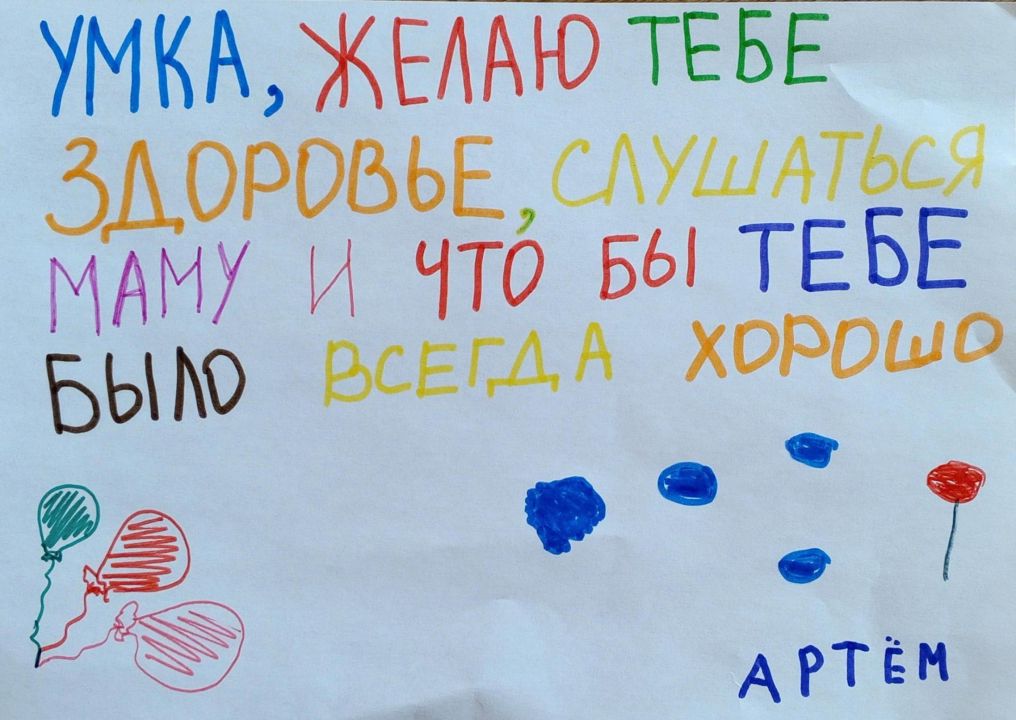 УМКА, ЖЕЛАЮ ТЕБЕ
ЗДОРОВЬЕ, СЛУШАТЬСЯ
МАМУ И ЧТО БЫ ТЕБЕ
БЫЛО ВСЕГДА ХОРОШО
АРТЁМ